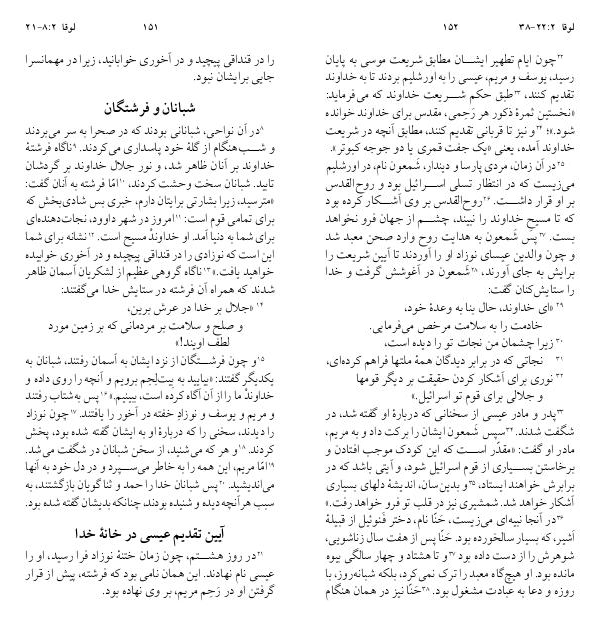 لوقا ۸:۲-۲۱
۱۵۱
را در قنداقی پیچید و در آخوری خوابانید، زیرا در مهمانسرا
جایی برایشان نبود.
شبانان و فرشتگان
۸در آن نواحی، شبانانی بودند که در صحرا به سر می‌بردند
و شب‌هنگام از گلهٔ خود پاسداری می‌کردند. ۹ناگاه فرشتهٔ
خداوند بر آنان ظاهر شد، و نور جلال خداوند بر گردشان
تابید. شبانان سخت وحشت کردند، ۱۰امّا فرشته به آنان گفت:
«مترسید، زیرا بشارتی برایتان دارم، خبری بس شادی‌بخش که
برای تمامی قوم است: ۱۱امروز در شهر داوود، نجات‌دهنده‌ای
برای شما به دنیا آمد. او خداوندْ مسیح است. ۱۲نشانه برای شما
این است که نوزادی را در قنداقی پیچیده و در آخوری خوابیده
خواهید یافت.» ۱۳ناگاه گروهی عظیم از لشکریان آسمان ظاهر
شدند که همراه آن فرشته در ستایش خدا می‌گفتند:
۱۴ «جلال بر خدا در عرش برین،
و صلح و سلامت بر مردمانی که بر زمین مورد
لطف اویند!»
۱۵و چون فرشتگان از نزد ایشان به آسمان رفتند، شبانان به
یکدیگر گفتند: «بیایید به بیت‌لِحِم برویم و آنچه را روی داده و
خداوندْ ما را از آن آگاه کرده است، ببینیم.» ۱۶پس به‌شتاب رفتند
و مریم و یوسف و نوزادِ خفته در آخور را یافتند. ۱۷چون نوزاد
را دیدند، سخنی را که دربارهٔ او به ایشان گفته شده بود، پخش
کردند. ۱۸و هر که می‌شنید، از سخن شبانان در شگفت می‌شد.
۱۹امّا مریم، این همه را به خاطر می‌سپرد و در دل خود به آنها
می‌اندیشید. ۲۰پس شبانان خدا را حمد و ثناگویان بازگشتند، به
سبب هرآنچه دیده و شنیده بودند، چنانکه بدیشان گفته شده بود.
آیین تقدیم عیسی در خانهٔ خدا
۲۱در روز هشتم، چون زمان ختنهٔ نوزاد فرا رسید، او را
عیسی نام نهادند. این همان نامی بود که فرشته، پیش از قرار
گرفتن او در رَحِم مریم، بر وی نهاده بود.
لوقا ۲۲:۲-۳۸
۱۵۲
۲۲چون ایام تطهیر ایشان مطابق شریعت موسی به پایان
رسید، یوسف و مریم، عیسی را به اورشلیم بردند تا به خداوند
تقدیم کنند، ۲۳طبق حکم شریعت خداوند که می‌فرماید:
«نخستین ثمرهٔ ذکور هر رَحِمی، مقدس برای خداوند خوانده
شود.»؛ ۲۴و نیز تا قربانی تقدیم کنند، مطابق آنچه در شریعت
خداوند آمده، یعنی «یک جفت قمری یا دو جوجه کبوتر».
۲۵در آن زمان، مردی پارسا و دیندار، شَمعون نام، در اورشلیم
می‌زیست که در انتظار تسلی اسرائیل بود و روح‌القدس
بر او قرار داشت. ۲۶روح‌القدس بر وی آشکار کرده بود
که تا مسیح خداوند را نبیند، چشم از جهان فرو نخواهد
بست. ۲۷پس شَمعون به هدایت روح وارد صحن معبد شد
و چون والدین عیسای نوزاد او را آوردند تا آیین شریعت را
برایش به جای آورند، ۲۸شَمعون در آغوشش گرفت و خدا
را ستایش‌کنان گفت:
۲۹ «ای خداوند، حال بنا به وعدهٔ خود،
خادمت را به سلامت مرخص می‌فرمایی.
۳۰ زیرا چشمان من نجات تو را دیده است،
۳۱ نجاتی که در برابر دیدگان همهٔ ملتها فراهم کرده‌ای،
۳۲ نوری برای آشکار کردن حقیقت بر دیگر قومها
و جلالی برای قوم تو اسرائیل.»
۳۳پدر و مادر عیسی از سخنانی که دربارهٔ او گفته شد، در
شگفت شدند. ۳۴سپس شَمعون ایشان را برکت داد و به مریم،
مادر او گفت: «مقدّر است که این کودک موجب افتادن و
برخاستن بسیاری از قوم اسرائیل شود، و آیتی باشد که در
برابرش خواهند ایستاد، ۳۵و بدین‌سان، اندیشهٔ دلهای بسیاری
آشکار خواهد شد. شمشیری نیز در قلب تو فرو خواهد رفت.»
۳۶در آنجا نبیه‌ای می‌زیست، حَنّا نام، دختر فَنوئیل از قبیلهٔ
اَشیر، که بسیار سالخورده بود. حَنّا پس از هفت سال زناشویی،
شوهرش را از دست داده بود ۳۷و تا هشتاد و چهار سالگی بیوه
مانده بود. او هیچ‌گاه معبد را ترک نمی‌کرد، بلکه شبانه‌روز، با
روزه و دعا به عبادت مشغول بود. ۳۸حَنّا نیز در همان هنگام